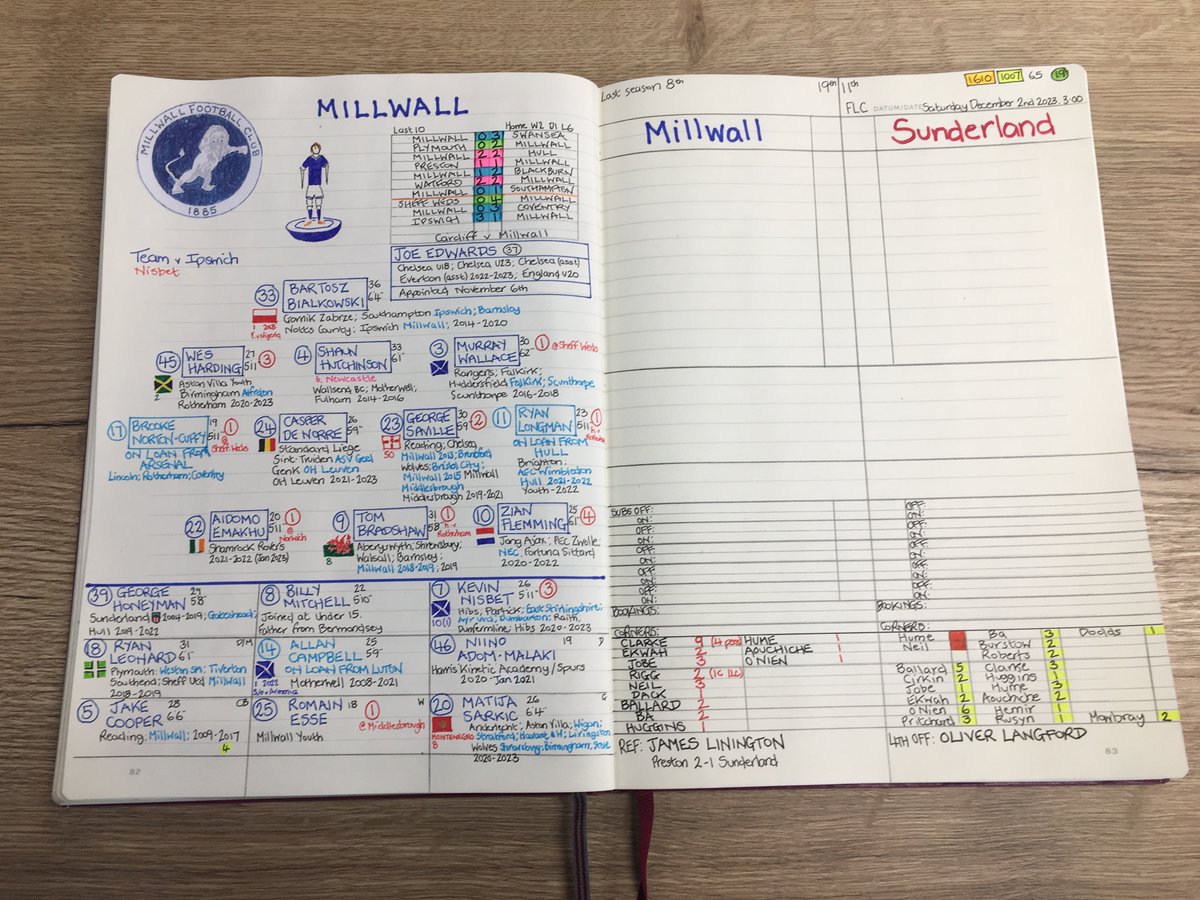 MILLWALL FOOTBALL CLUB
1885
MILLWALL
Last 10 Home W2 D1 L6
MILLWALL 0 3 SWANSEA
PLYMOUTH 0 2 MILLWALL
MILLWALL 2 2 HULL
PRESTON 1 1 MILLWALL
MILLWALL 1 2 BLACKBURN
WATFORD 2 2 MILLWALL
MILLWALL 0 1 SOUTHAMPTON
SHEFF WEDS 0 4 MILLWALL
MILLWALL 0 3 COVENTRY
IPSWICH 3 1 MILLWALL
Cardiff v Millwall
Team v Ipswich
Nisbet
JOE EDWARDS 37
Chelsea U18; Chelsea U23; Chelsea (asst)
Everton (asst) 2022-2023; England U20
Appointed November 6th
33 BARTOSZ BIALKOWSKI 36 6'4"
Gornik Zabrze; Southampton Ipswich; Barnsley
Notts County; Ipswich Millwall; 2014-2020
1 2018
45 WES HARDING 27 5'11 3
2
Aston Villa Youth
Birmingham Alfreton
Rotherham 2020-2023
4 SHAUN HUTCHINSON 33 6'1"
b. Newcastle
Wallsend BC; Motherwell;
Fulham 2014-2016
3 MURRAY WALLACE 30 6'2" 1 @ Sheff Weds
Rangers; Falkirk;
Huddersfield Falkirk; Scunthorpe
Scunthorpe 2016-2018
17 BROOKE NORTON-CUFFY 19 5'11 1 @ Sheff Weds
ON LOAN FROM
ARSENAL
Lincoln; Rotherham; Coventry
24 CASPER DE NORRE 26 5'9"
Standard Liege
Sint-Truiden ASV Geel
Genk OH Leuven
OH Leuven 2021-2023
23 GEORGE SAVILLE 30 5'9" 2
50
Reading; Chelsea
Millwall 2013; Brentford
Wolves; Bristol City;
Millwall 2015 Millwall
Middlesbrough
Middlesbrough 2019-2021
11 RYAN LONGMAN 23 5'11 1 h.v Rotherham
ON LOAN FROM
HULL
Brighton.
AFC Wimbledon
Hull 2021-2022
Youth-2022
22 AIDOMO EMAKHU 20 5'11 1 @ Norwich
Shamrock Rovers
2021-2022 (Jan 2023)
9 TOM BRADSHAW 31 5'8" 1 h.v Rotherham
8
Aberystwyth; Shrewsbury;
Walsall; Barnsley;
Millwall 2018-2019; 2019
10 ZIAN FLEMMING 25 6'1" 4
Jong Ajax; PEC Zwolle;
NEC, Fortuna Sittard
2020-2022
39 GEORGE HONEYMAN 29 5'8"
Sunderland 2014-2019; Gateshead;
Hull 2019-2022
8 BILLY MITCHELL 22 5'10"
Joined at Under 15.
Father from Bermondsey
7 KEVIN NISBET 26 5'11" 3
10(1)
Hibs; Partick; East Stirlingshire;
Ayr Utd; Dumbarton; Raith,
Dunfermline, Hibs 2020-2023
18 RYAN LEONARD 31 6'1" D/M
Plymouth; Weston SM; Tiverton
Southend; Sheff Utd Millwall
2018-2019
14 ALLAN CAMPBELL 25 5'9"
ON LOAN FROM LUTON
1 2022
Motherwell 2008-2021
46 NIINO ADOM-MALAKI 19 D
Harris Kinetic Academy / Spurs
2020-Jan 2021
5 JAKE COOPER 28 6'6" CB
Reading; Millwall; 2009-2017
4
25 ROMAIN ESSE 18 W
1 @ Middlesbrough
Millwall Youth
20 MATIJA SARKIC 26 6'4" G
MONTENEGRO
8
Anderlecht; Aston Villa; Wigan;
Stratford; Havant & W; Livingston
Wolves Shrewsbury; Birmingham, Stoke
2020-2023
82
Last season 8th
19th 11th
1610 1007 65 19
FLC DATUM/DATE Saturday December 2nd 2023. 3:00
Millwall Sunderland
SUBS OFF: OFF:
ON: ON:
OFF: OFF:
ON: ON:
OFF: OFF:
ON: ON:
OFF: OFF:
ON: ON:
OFF: OFF:
ON: ON:
BOOKINGS: BOOKINGS:
CORNERS: CORNERS
CLARKE 9 (4 pens) HUME 1
EKWAH 2 AOUCHICHE 1
JOBE 3 O'NIEN 1
RIGG 2 (1C 1LC)
NEIL 3
DACK 1
BALLARD 2
BA 2
HUGGINS 1
Hume Ba 3 Dodds 1
Neil Burstow 2
Roberts 2
Ballard 5 Clarke 3
Cirkin 2 Huggins 1
Jobe 1 Hume 3
Ekwah 2 Aouchiche 2
O'Nien 6 Hemir 1
Pritchard 3 Rusyn 1 Mowbray 2
REF: JAMES LININGTON
Preston 2-1 Sunderland
4TH OFF: OLIVER LANGFORD
83